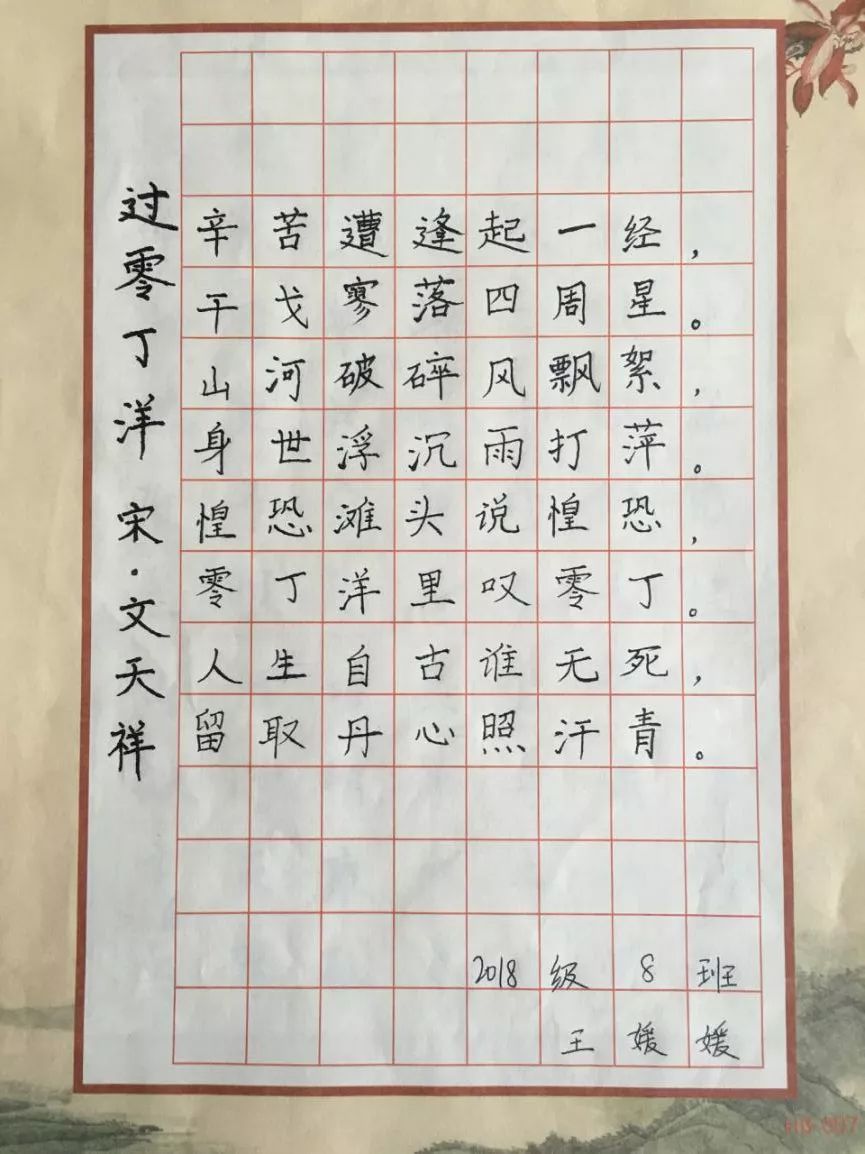 过零丁洋 宋·文天祥
辛苦遭逢起一经，
干戈寥落四周星。
山河破碎风飘絮，
身世浮沉雨打萍。
惶恐滩头说惶恐，
零丁洋里叹零丁。
人生自古谁无死，
留取丹心照汗青。
2018级8班
王媛媛
HB-807